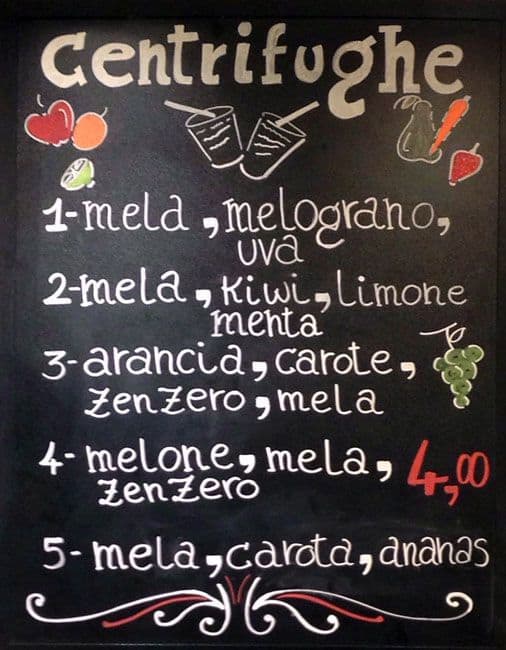 Centrifughe
1-mela, melograno,
uva
2-mela, kiwi, limone
menta
3-arancia, carote,
zenzero, mela
4- melone, mela, 4,00
zenzero
5- mela, carota, ananas